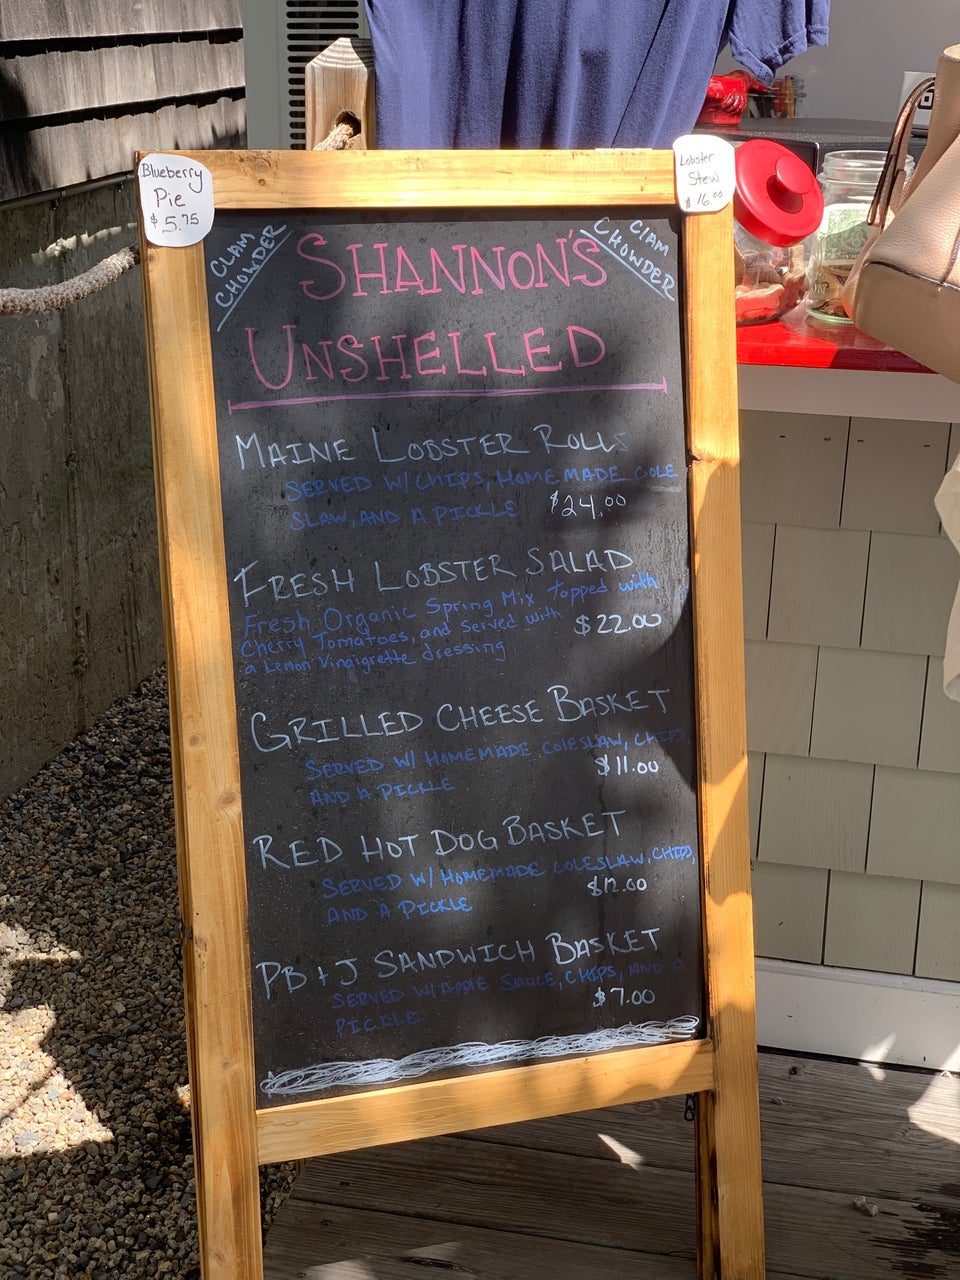 Blueberry
Pie
$5.75
Lobster
Stew
$16.00
CLAM
CHOWDER
CLAM
CHOWDER
SHANNON'S
UNSHELLED
MAINE LOBSTER ROLLS
SERVED W/ CHIPS, HOMEMADE COLE
SLAW, AND A PICKLE $24.00
FRESH LOBSTER SALAD
Fresh Organic Spring Mix topped with
Cherry Tomatoes, and served with $22.00
a Lemon Vinaigrette dressing
GRILLED CHEESE BASKET
SERVED W/ HOMEMADE COLESLAW, CHIPS
AND A PICKLE $11.00
RED HOT DOG BASKET
SERVED W/ HOMEMADE COLESLAW, CHIPS,
AND A PICKLE $12.00
PB + J SANDWICH BASKET
SERVED W/ APPLE SAUCE, CHIPS, AND A
PICKLE $7.00